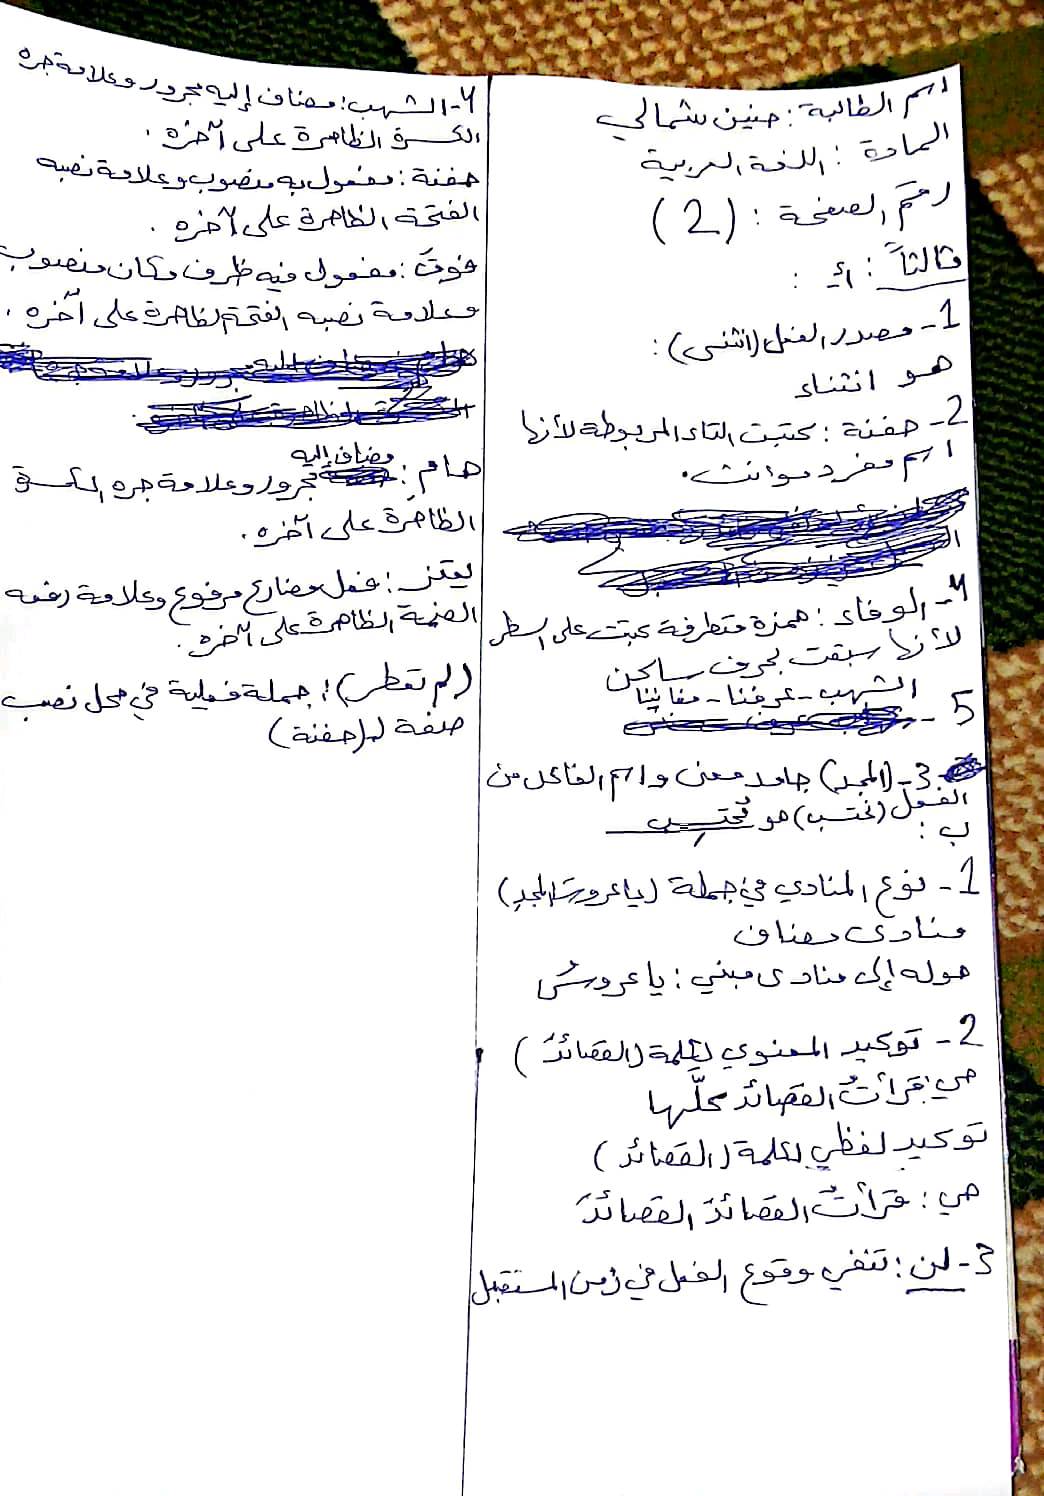 اسم الطالبة : حنين شمالي
المادة : اللغة العربية
رقم الصفحة : (2)
ثالثاً : أ- :
1- مصدر الفعل (انثنى) :
هو انثناء
2- جفنة : كتبت التاء المربوطة لأنها
اسم مفرد مؤنث.
4- الوفاء : همزة متطرفة كتبت على السطر
لأنها سبقت بحرف ساكن
الشهب - عرفنا - مغانينا
5 -
3- (المجد) جامد معنى واسم الفاعل من
الفعل (تحتسب) هو مُحتسِب
ب :
1- نوع المنادى في جملة (يا عروسَ المجدِ)
منادى مضاف
حوله إلى منادى مبني : يا عروسُ
2- توكيد المعنوي لكلمة (القصائدَ)
هي : قرأتُ القصائد كلَّها
توكيد لفظي لكلمة (القصائدَ)
هي : قرأتُ القصائدَ القصائدَ
3- لن : تنفي وقوع الفعل في زمن المستقبل
4- الشهب : مضاف إليه مجرور وعلامة جره
الكسرة الظاهرة على آخره .
جفنة : مفعول به منصوب وعلامة نصبه
الفتحة الظاهرة على آخره .
فوقَ : مفعول فيه ظرف مكان منصوب
وعلامة نصبه الفتحة الظاهرة على آخره .
مضاف إليه
هامِ : مجرور وعلامة جره الكسرة
الظاهرة على آخره .
يعتز : فعل مضارع مرفوع وعلامة رفعه
الضمة الظاهرة على آخره .
(لم تعطر) : جملة فعلية في محل نصب
صفة لـ (جفنة)